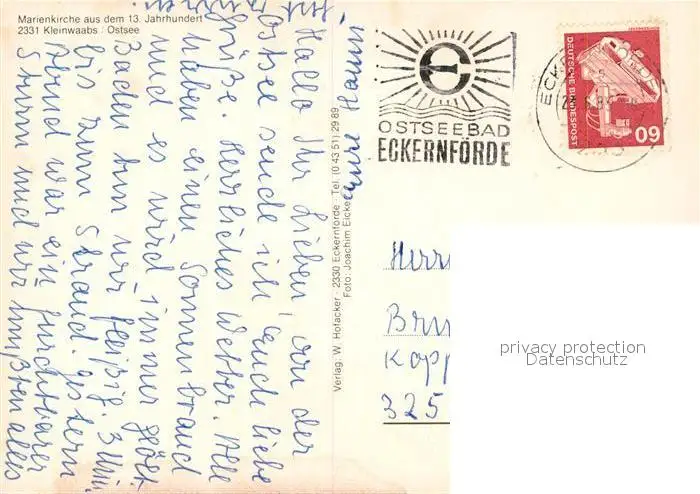 Marienkirche aus dem 13. Jahrhundert
2331 Kleinwaabs / Ostsee
Hallo Ihr Lieben, an der
Ostsee sende ich Euch liebe
Grüße. Herrliches Wetter. Alle
haben einen Sonnenbrand
und es wird immer
Baden tun wir fleißig. 3 Min.
bis zum Strand. Gestern
Abend war ein furchtbarer
Sturm und wir mußten alles
Eure Hanni
Verlag: W. Hofacker · 2330 Eckernförde · Tel. (0 43 51) 29 89
Foto: Joachim Eicke
OSTSEEBAD
ECKERNFÖRDE
DEUTSCHE BUNDESPOST
60
Herrn
Kopp
325
privacy protection
Datenschutz